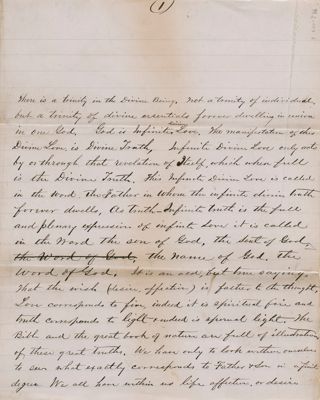 (1)
There is a trinity in the Divine Being, not a trinity of individuals
but a trinity of divine essentials forever dwelling in union
in one God, God is Infinite Love. The manifestation of this
Divine Love, is Divine Truth, Infinite Divine Love only acts
by or through that revelation of Itself, which when full
is the Divine Truth. This Infinite Divine Love is called
in the Word the Father in whom the infinite divine truth
forever dwells, As truth Infinite truth is the full
and plenary expression of infinite Love it is called
in the Word the son of God, the Seat of God,
the Word of God, the name of God, the
Word of God. It is an old, but true saying,
That the wish (desire, affection) is father to the thought,
Love corresponds to fire, indeed it is spiritual fire and
truth corresponds to light indeed is spiritual light. The
Bible and the great book of nature are full of illustrations
of these great truths. We have only to look within ourselves
to see what exactly corresponds to Father & Son in a finite
degree We all have within us life affection, or desire